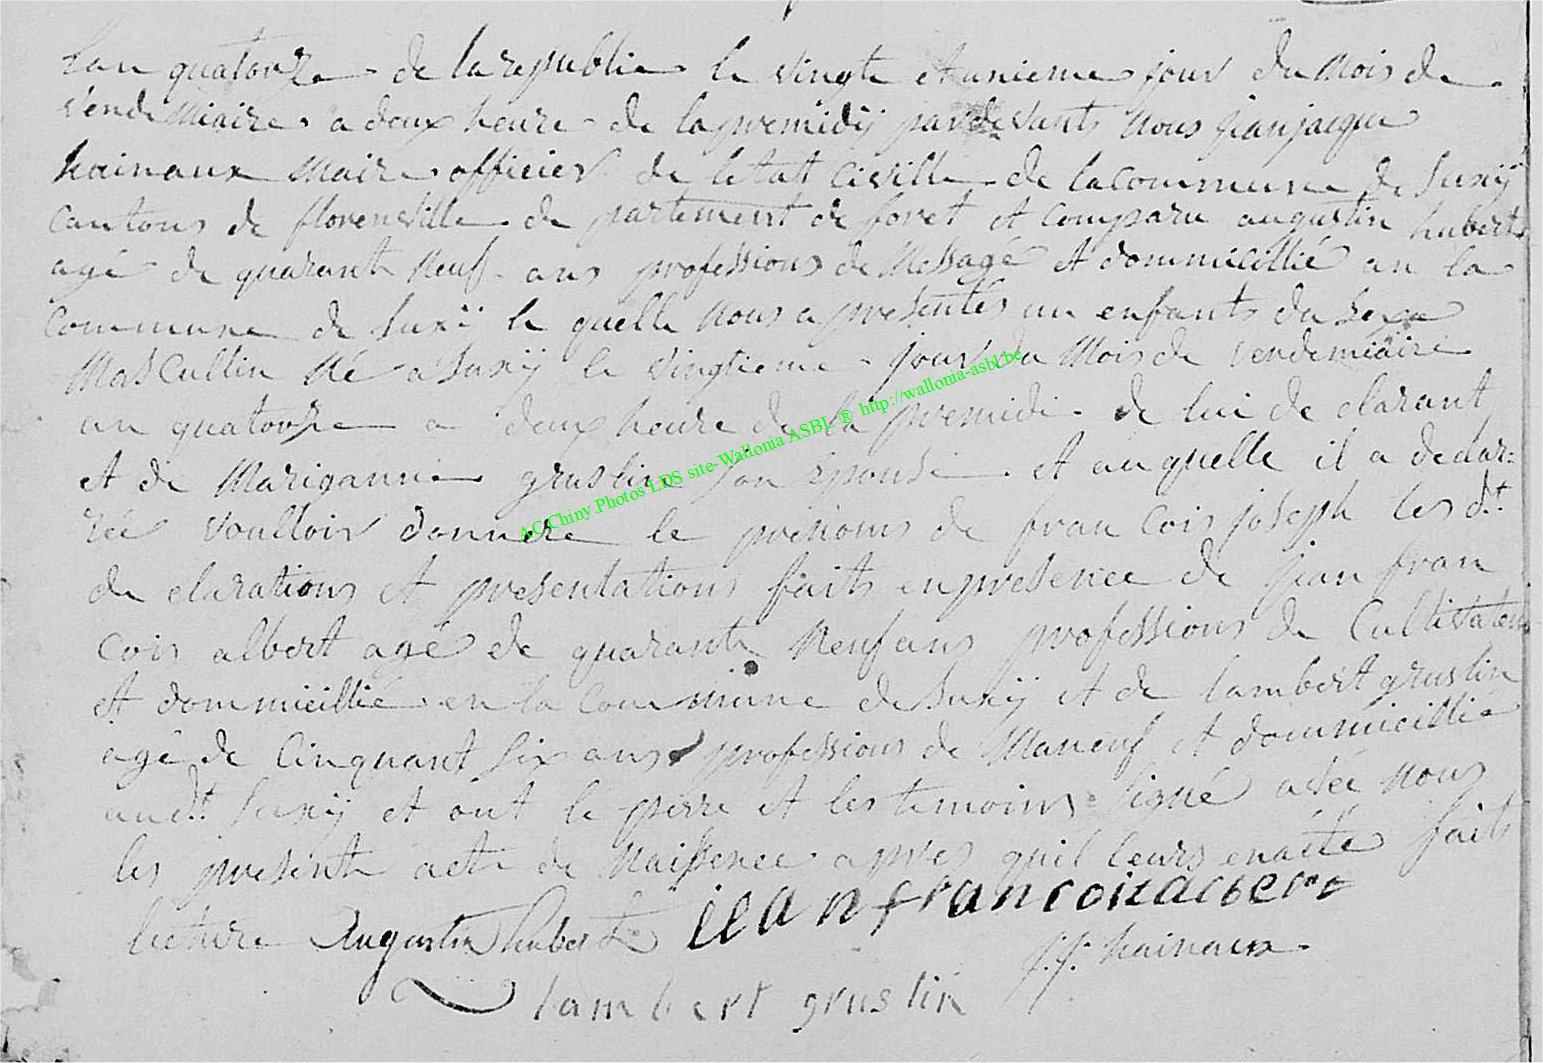 L'an quatorze de la republie le vingte et unieme jour du Mois de
vendemiaire a deux heure de lapremidij pardevants Nous jeanjacque
hainaux Maire officier de letat civille de lacommune de Suxÿ
cantons de florenville de partement de foret et comparu augustin huberts
agé de quarante Neuf ans professions de Messagé et dommicillié an la
commune de Suxÿ le quelle Nous a presentés un enfants du sexe
Mascullin Né a Suxÿ le vingtieme jours du Mois de vendemiaire
an quatorze a deux heure de la premidi de lui de clarant
et de Marigannie gruslin son epouse et au quelle il a declar=
réé voulloir donnere le prenoms de fran cois joseph les d.t
de clarations et presentations faits enpresence de jean fran
cois albert agé de quarante Neuf ans professions de Cultivateur
et dommicillié en la commune de Suxÿ et de lambert gruslin
agé de Cinquant six ans professions de Maneuf et dommicillié
aud.t Suxÿ et ont le perre et les temoins signé avée Nous
les present acte de Naissence apres quil leurs enaété faits
lecture Augustin hubert jeanfrancoitalbert
j.j. hainaux
lambert gruslin
AC Chiny Photos LDS site-Wallonia ASBL ® http://wallonia-asbl.be